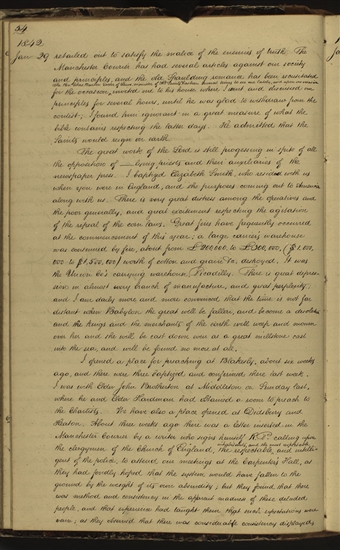 54
1842
Jan 29 retailed out to satisfy the malice of the enemies of truth. The
Manchester Courier has had several articles against our society
and principles, and the old Spaulding romance has been resuscitated
for the occasion, invited me to his house where I went and discussed on
principles for several hours, until he was glad to withdraw from the
contest; I found him ignorant in a great measure of what the
bible contains respecting the latter days. He admitted that the
Saints would reign on earth.
The great work of the Lord is still progressing in spite of all
the opposition of lying priests and their auxiliaries of the
newspaper press. I baptized Elizabeth Smith, who resided with us
when you were in England, and she purposes coming out to America
along with us. There is very great distress among the operatives and
the poor generally, and great excitement respecting the agitation
of the repeal of the corn laws. Great fires have frequently occurred
at the commencement of this year; a large carrier's warehouse
was consumed by fire, about from £200,000, to £300,000, ($1,000,
000 to $1,500,000) worth of cotton and grain &c, destroyed; it was
the Union Co's carrying warehouse, Piccadilly. There is great depres-
sion in almost every branch of manufacture, and great perplexity;
and I am daily more and more convinced that the time is not far
distant when Babylon the great will be fallen, and become a desolation
and the kings and the merchants of the earth will weep and mourn
over her and she will be cast down even as a great millstone cast
into the sea, and will be found no more at all.
I opened a place for preaching at Blakely, about six weeks
ago, and there were three baptized and confirmed there last week.
I was with Elder John Brotherton at Middleton on Sunday last,
where he and Elder Pardman had gained a room to preach to
the Chartists. We have also a place opened at Didsbury and
Heaton. About three weeks ago there was a letter inserted in the
Manchester Courier by a writer who signs himself R. P. calling upon
the clergymen of the Church of England, the respectable, and intelli-
gent of the police, to attend our meetings at the Carpenters Hall, as
they had fondly hoped that the system would have fallen to the
ground by the weight of its own absurdity; but they found that there
was method and consistency in the apparent madness of these deluded
people, and that experience had taught them that such expectations were
vain; as they observed that there was considerable consistency displayed